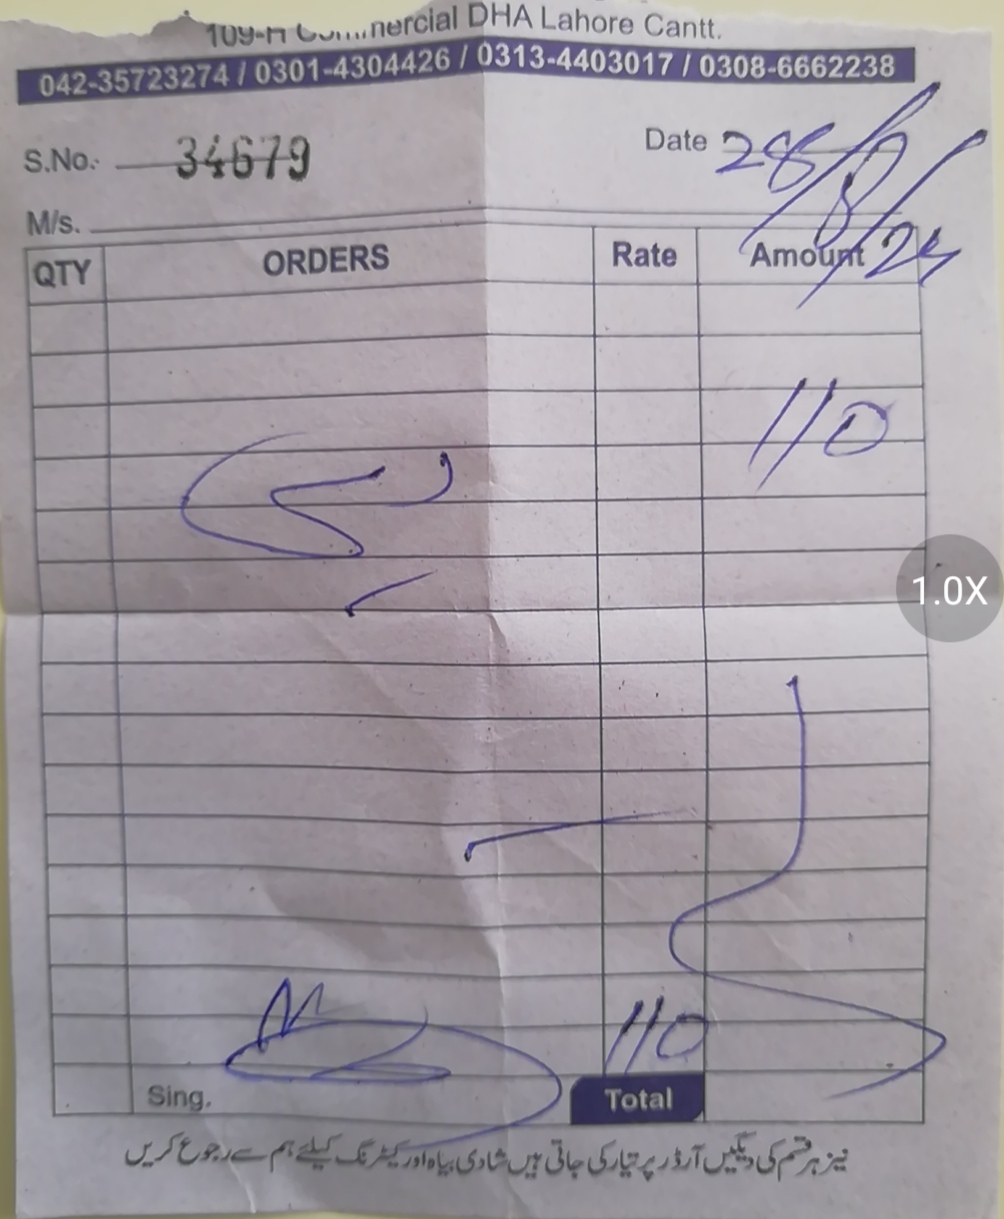 109-H Commercial DHA Lahore Cantt.
042-35723274 / 0301-4304426 / 0313-4403017 / 0308-6662238
S.No. 34679 Date 28/8/24
M/s.
QTY ORDERS Rate Amount
110
110
Sing. Total
نیز ہر قسم کی دیگیں آرڈر پر تیار کی جاتی ہیں شادی بیاہ اور کیٹرنگ کیلئے ہم سے رجوع کریں
1.0X